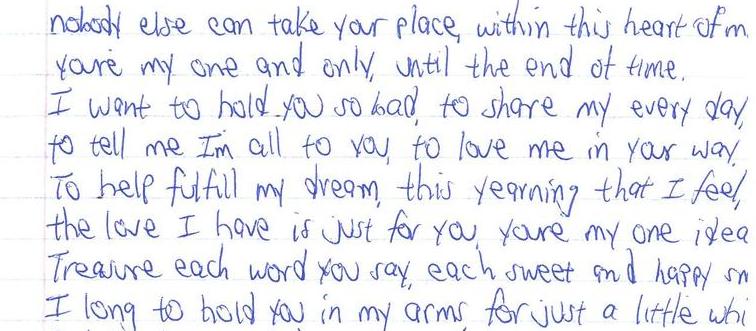 nobody else can take your place, within this heart of m
youre my one and only, until the end of time.
I want to hold you so bad, to share my every day,
to tell me I'm all to you, to love me in your way.
To help fulfill my dream, this yearning that I feel,
the love I have is just for you, youre my one idea
Treasure each word you say, each sweet and happy sm
I long to hold you in my arms for just a little whi